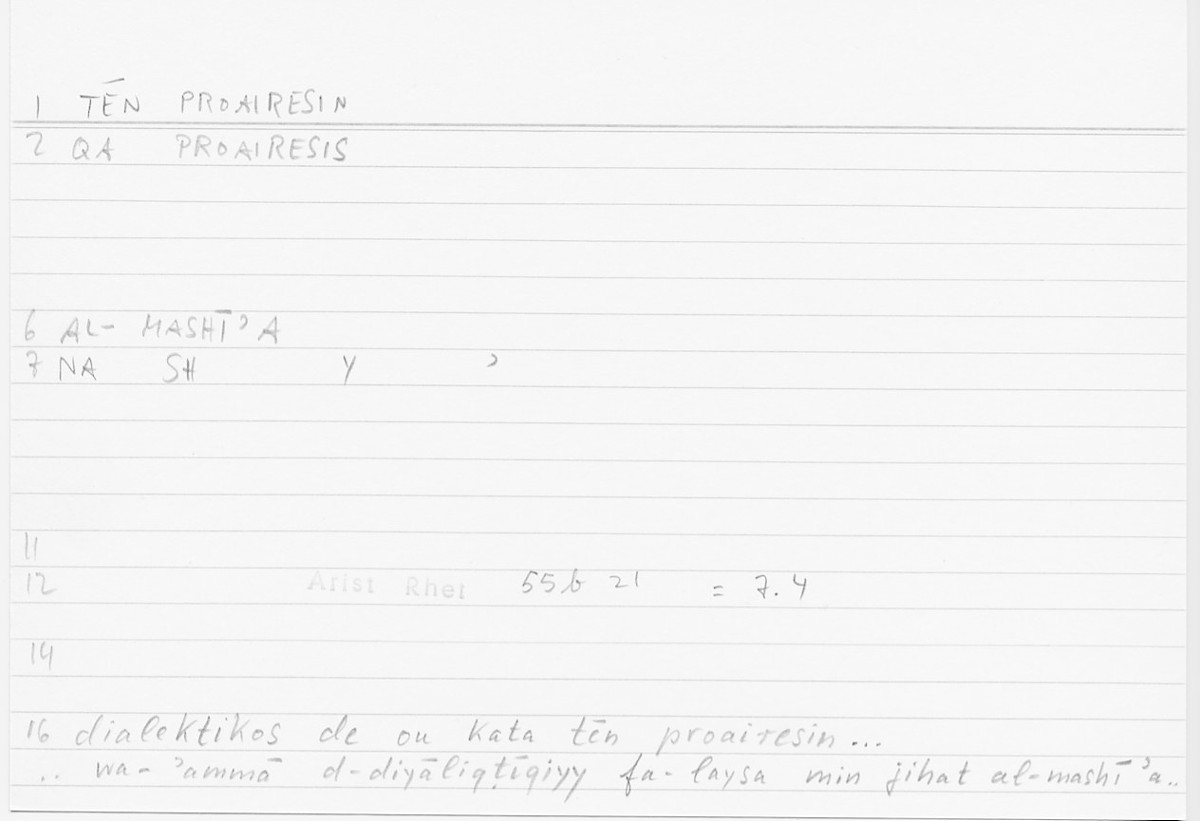 1 TĒN PROAIRESIN
2 QA PROAIRESIS
6 AL- MASHĪʾA
7 NA SH Y ʾ
11
12 Arist Rhet 55b 21 = 7.4
14
16 dialektikos de ou kata tēn proairesin...
.. wa-ʾammā d-diyāliqṭīqiyy fa-laysa min jihat al-mashīʾa..